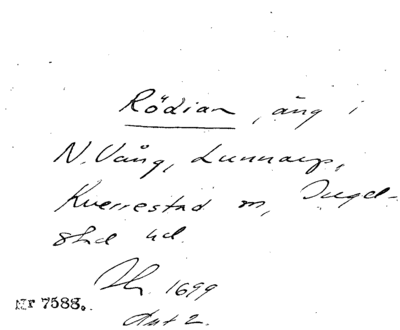 Rödian, äng i
N. Vång, Lunnarp,
Kverrestad sn, Ingel-
sta hd.
Lh. 1699
Akt 2.
Nr 7588.